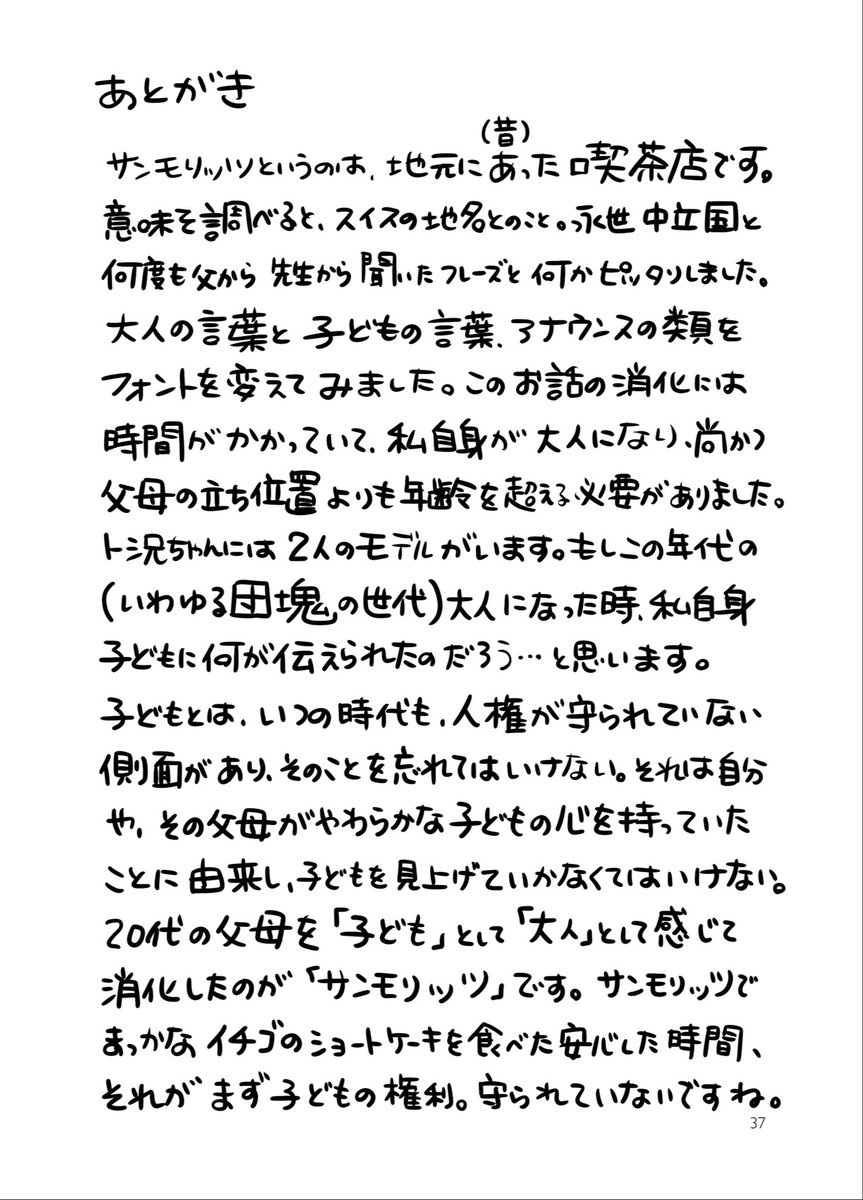 あとがき
(昔)
サンモリッツというのは、地元にあった喫茶店です。
意味を調べると、スイスの地名とのこと。永世中立国と
何度も父から先生から聞いたフレーズと何かピッタリしました。
大人の言葉と子どもの言葉、アナウンスの類を
フォントを変えてみました。このお話の消化には
時間がかかっていて、私自身が大人になり、尚かつ
父母の立ち位置よりも年齢を超える必要がありました。
ト況ちゃんには2人のモデルがいます。もしこの年代の
(いわゆる団塊の世代)大人になった時、私自身
子どもに何が伝えられたのだろう…と思います。
子どもとは、いつの時代も、人権が守られていない
側面があり、そのことを忘れてはいけない。それは自分
や、その父母がやわらかな子どもの心を持っていた
ことに由来し、子どもを見上げていかなくてはいけない。
20代の父母を「子ども」として「大人」として感じて
消化したのが「サンモリッツ」です。サンモリッツで
まっかなイチゴのショートケーキを食べた安心した時間、
それがまず子どもの権利。守られていないですね。
37